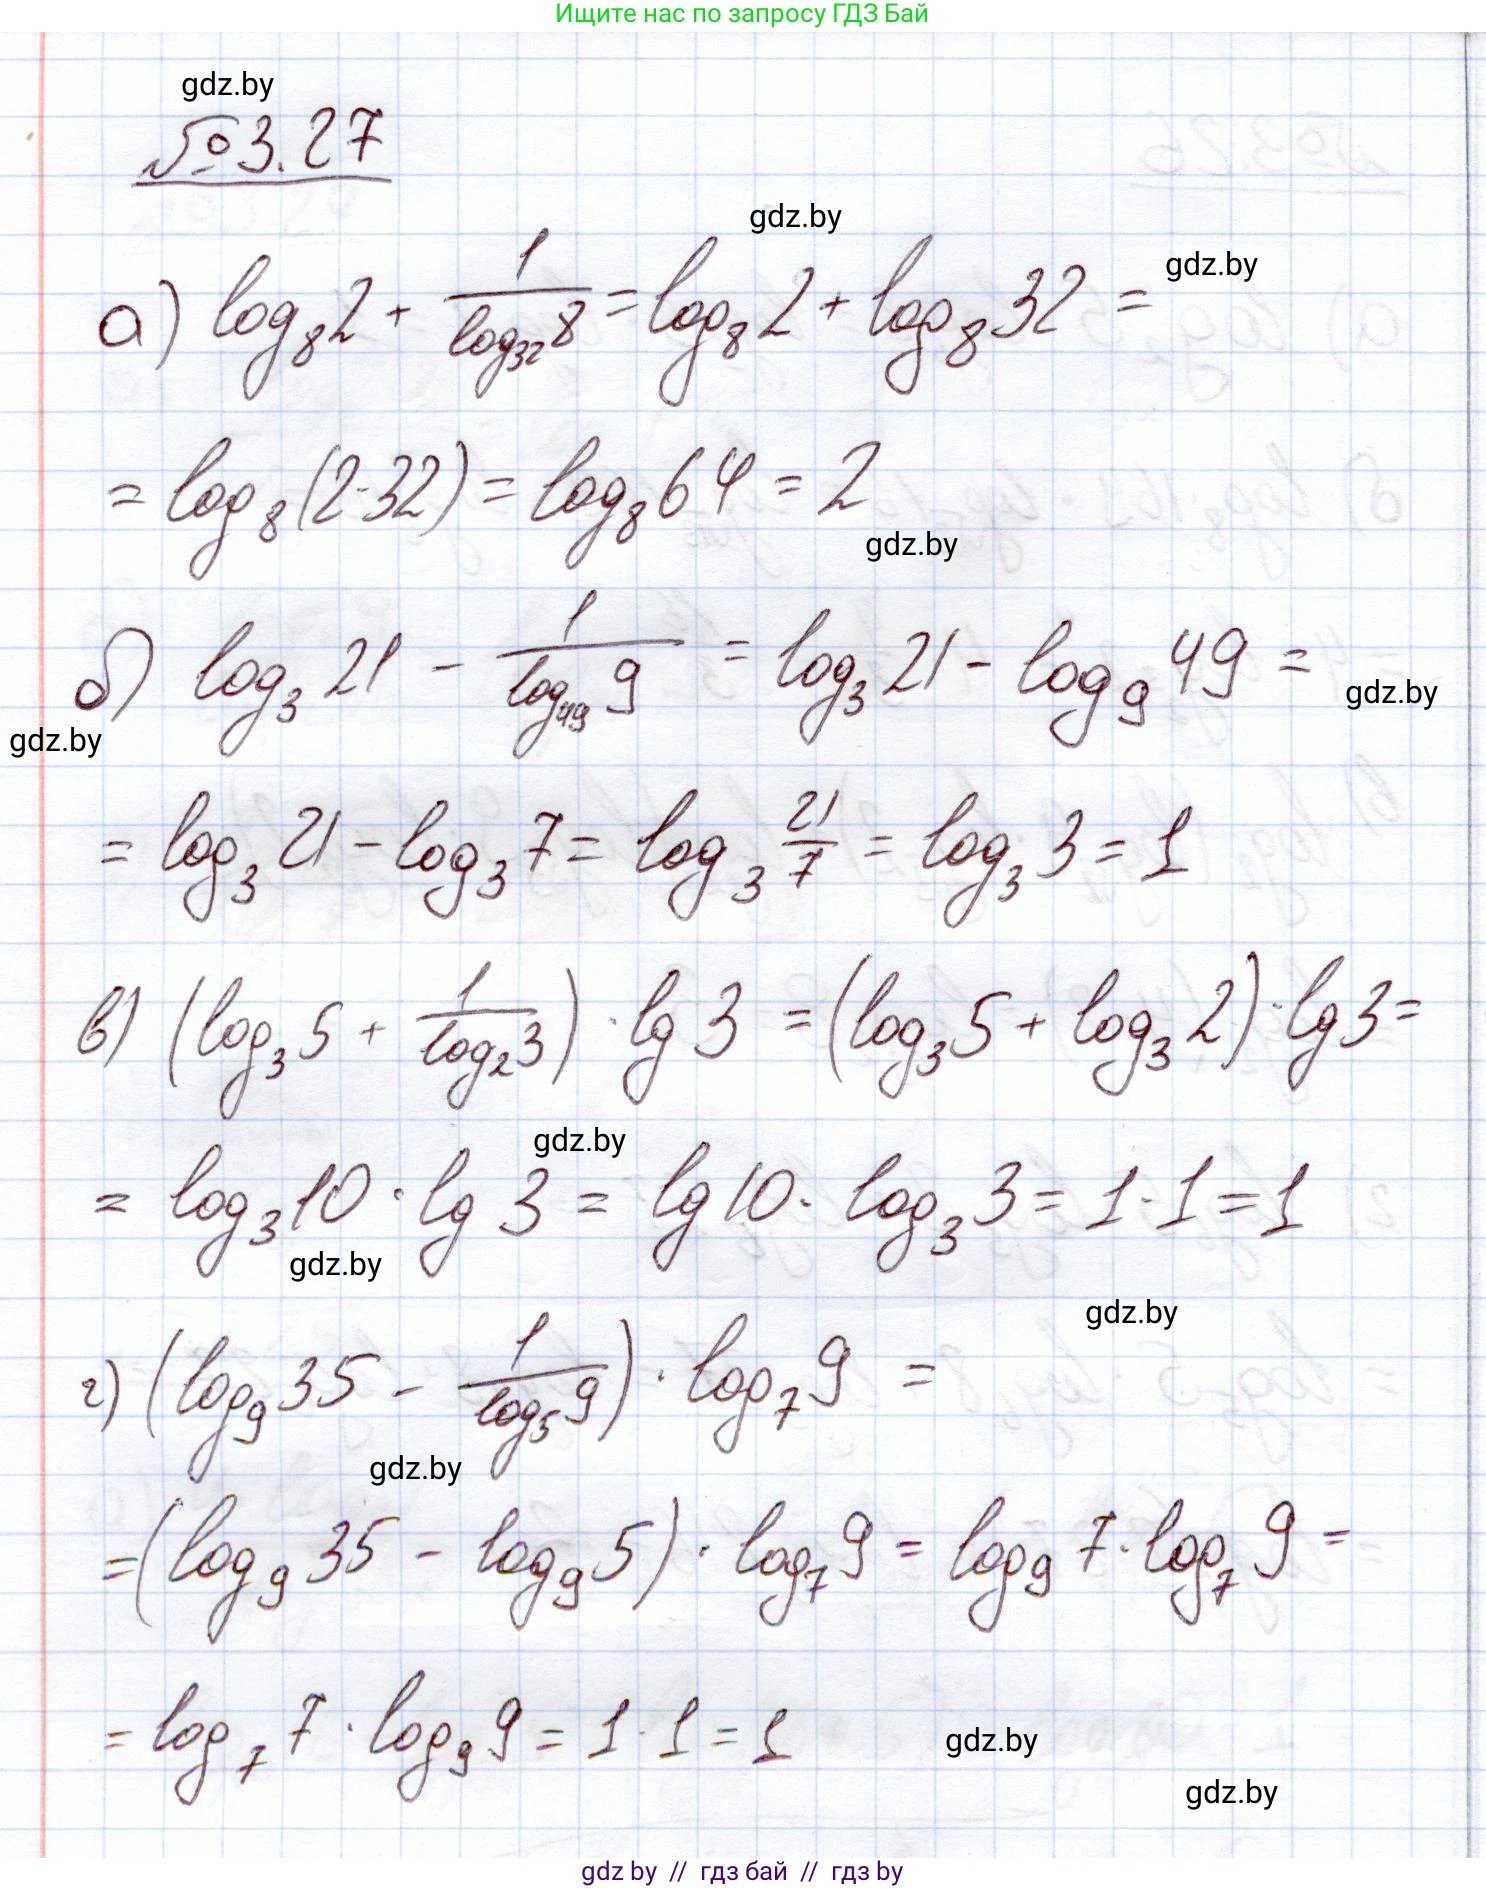 Ищите нас по запросу ГДЗ Бай
gdz.by
№3.27
gdz.by
gdz.by
а) log₈2 + 1/(log₃₂8) = log₈2 + log₈32 =
= log₈(2·32) = log₈64 = 2
gdz.by
б) log₃21 - 1/(log₄₉9) = log₃21 - log₉49 =
gdz.by
gdz.by
= log₃21 - log₃7 = log₃ 21/7 = log₃3 = 1
в) (log₃5 + 1/(log₂3)) · lg3 = (log₃5 + log₃2) · lg3 =
gdz.by
= log₃10 · lg3 = lg10 · log₃3 = 1·1 = 1
gdz.by
gdz.by
г) (log₉35 - 1/(log₅9)) · log₇9 =
gdz.by
= (log₉35 - log₉5) · log₇9 = log₉7 · log₇9 =
= log₇7 · log₉9 = 1·1 = 1
gdz.by
gdz.by
gdz by // гдз бай // гдз by